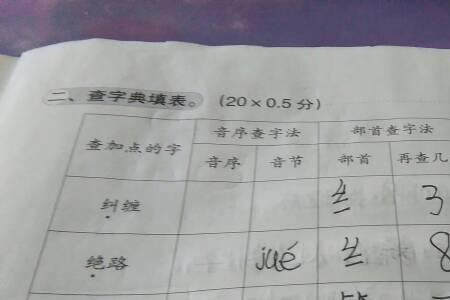 二、查字典填表。（20×0.5分）
查加点的字 音序查字法 部首查字法
音序 音节 部首 再查几
纠缠 纟 3
绝路 jué 纟 8